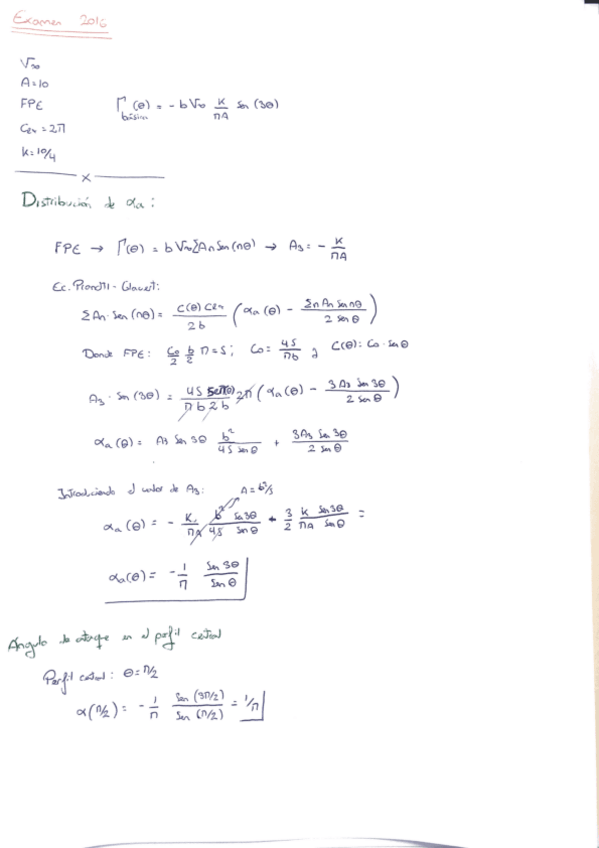 Examen 2016
V∞
A=10
FPE Γ(θ) = -bV∞ K/ΠA sen (3θ)
básica
Czα = 2Π
K=10/4
x
Distribución de αa:
FPE → Γ(θ) = bV∞ΣAn Sen(nθ) → A3 = - K/ΠA
Ec. Prandtl-Glauert:
ΣAn·Sen (nθ) = C(θ) Czα / 2b (αa(θ) - Σn An Sen nθ / 2 senθ)
Donde FPE: Co/2 b/2 Π = S; Co = 4S/Πb y C(θ) = Co·senθ
A3·Sen (3θ) = 4S Sen(θ) 2Π / Π b 2b (αa(θ) - 3 A3 Sen 3θ / 2 senθ)
αa(θ) = A3 Sen 3θ b²/4S senθ + 3A3 Sen 3θ / 2 senθ
Introduciendo el valor de A3: A = b²/S
αa(θ) = - K/ΠA b²/4S Sen3θ/senθ - 3/2 K/ΠA Sen3θ/senθ =
αa(θ) = -1/Π Sen 3θ / Senθ
Ángulo de ataque en el perfil central
Perfil central: θ = Π/2
α(Π/2) = -1/Π Sen (3Π/2) / Sen (Π/2) = 1/Π